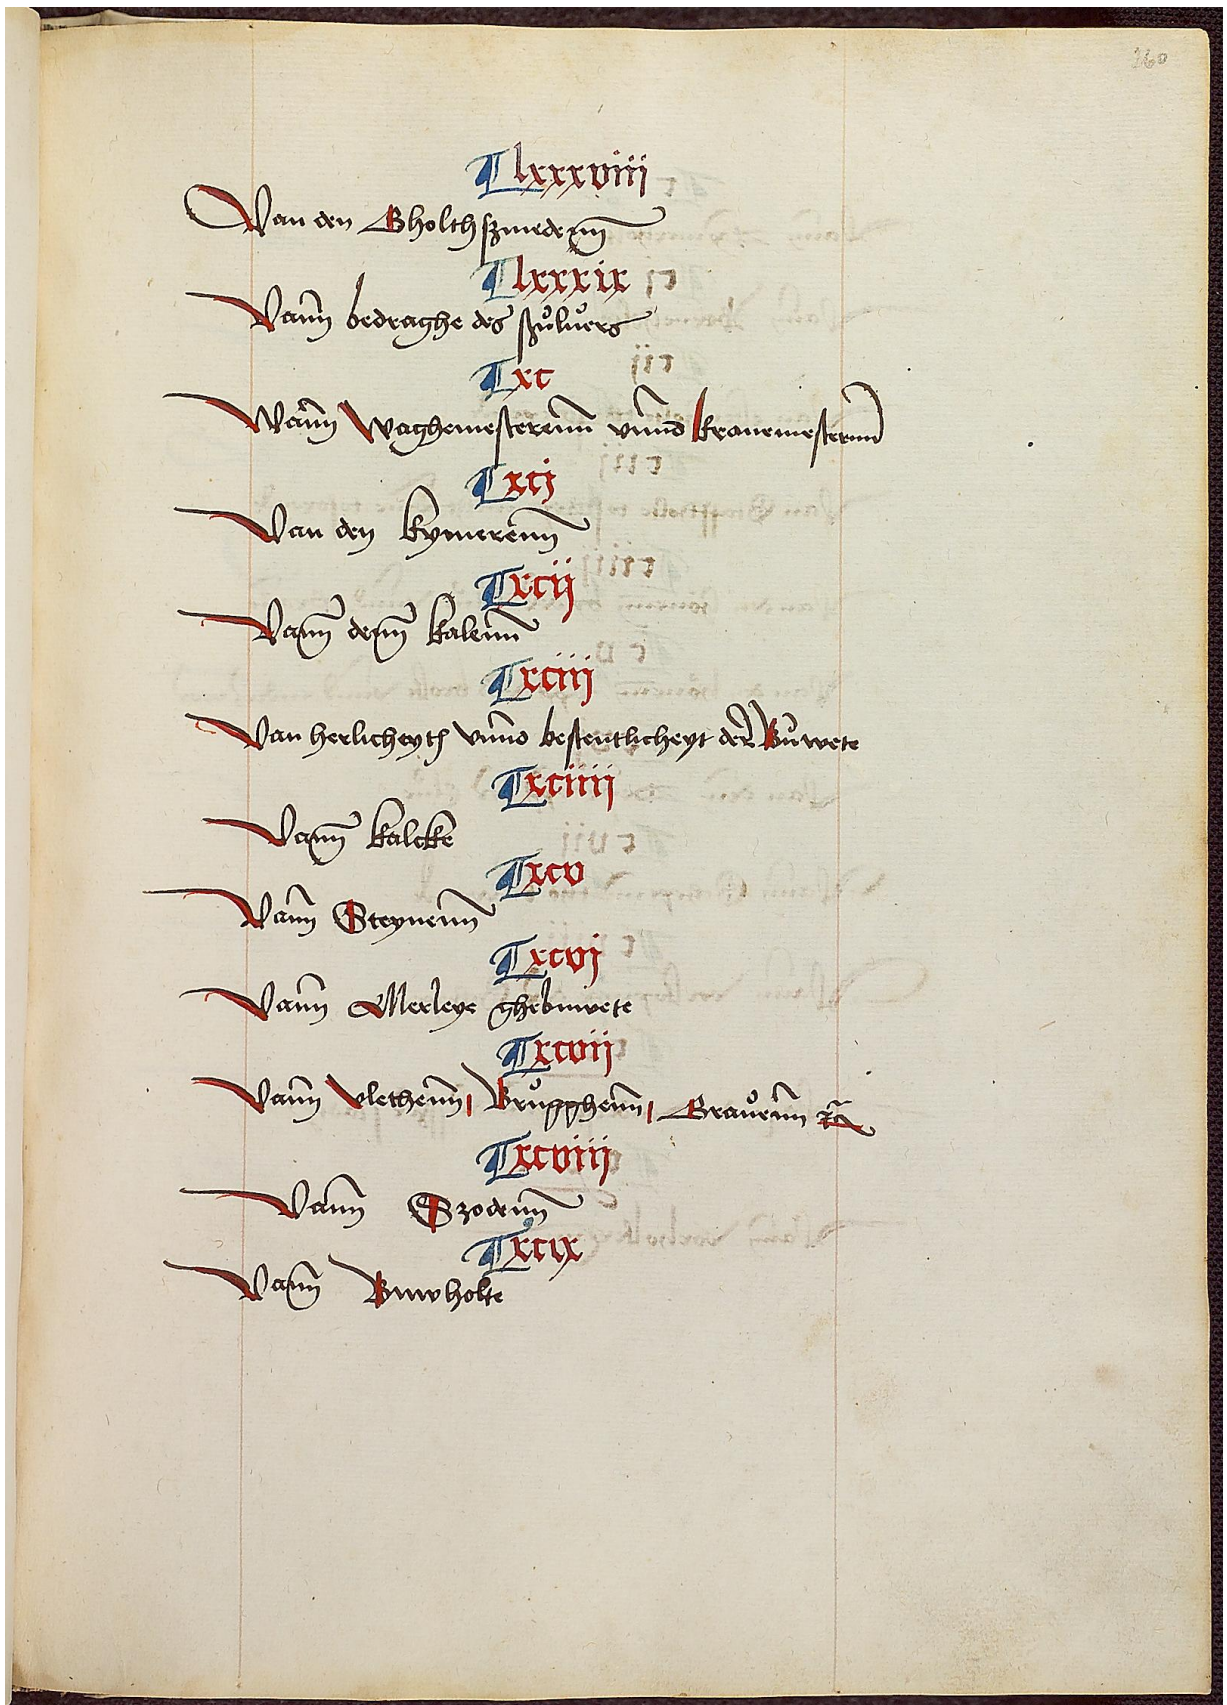 160
¶ lxxxviiij
Van den Gholthszmedenn
¶ lxxxix
Vann bedraghe des szůluers
¶ xc
Vann Waghemesterenn vnnd kranemesterenn
¶ xcj
Van den kymerenn
¶ xcij
Vann denn kalenn
¶ xciij
Van herlicheyth vnnd bestentlicheyt der Buwete
¶ xciiij
Vann kalcke
¶ xcv
Vann Steynenn
¶ xcvj
Vann Merleye ghebuwete
¶ xcvij
Vann vlethenn, Brůgghenn, Grauenn
¶ xcviij
Vann Szodenn
¶ xcix
Vann Buwholte